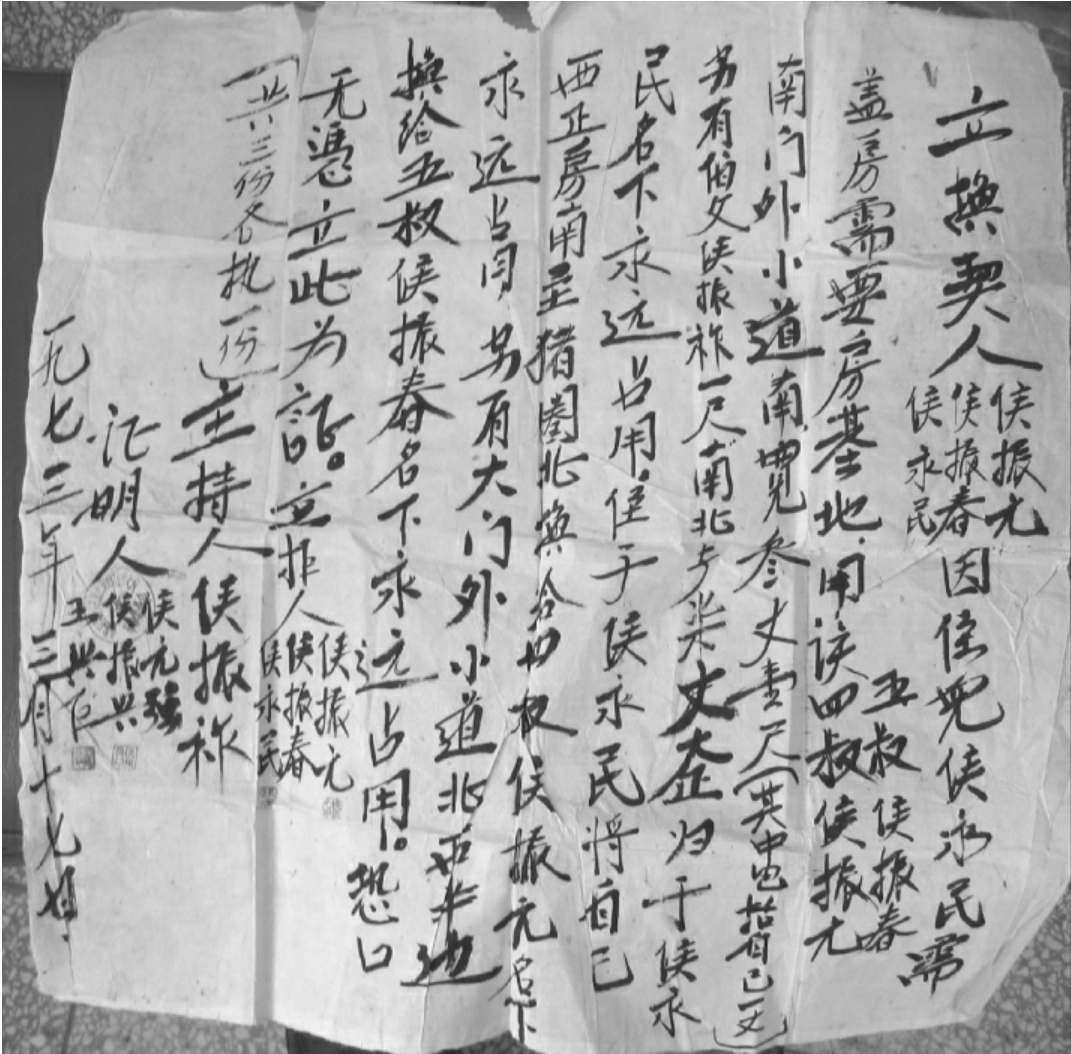 立换契人侯振元侯振春侯永民因侄儿侯永民需
盖房需要房基地，用该四叔侯振元五叔侯振春
南门外小道南宽叁丈壹尺（其中包括自己一丈）
另有伯父侯振祚一尺南北长柒丈大正归于侯永
民名下永远占用。侄子侯永民将自己
西正房南至猪圈北换给四叔侯振元名下
永远占用，另有大门外小道北西半边
换给五叔侯振春名下永远占用。恐口
无凭立此为证。立拒人侯振元侯振春侯永民
（共三份各执一份）
主持人侯振祚
证明人侯元强侯振兴王兴
一九七三年三月十七日